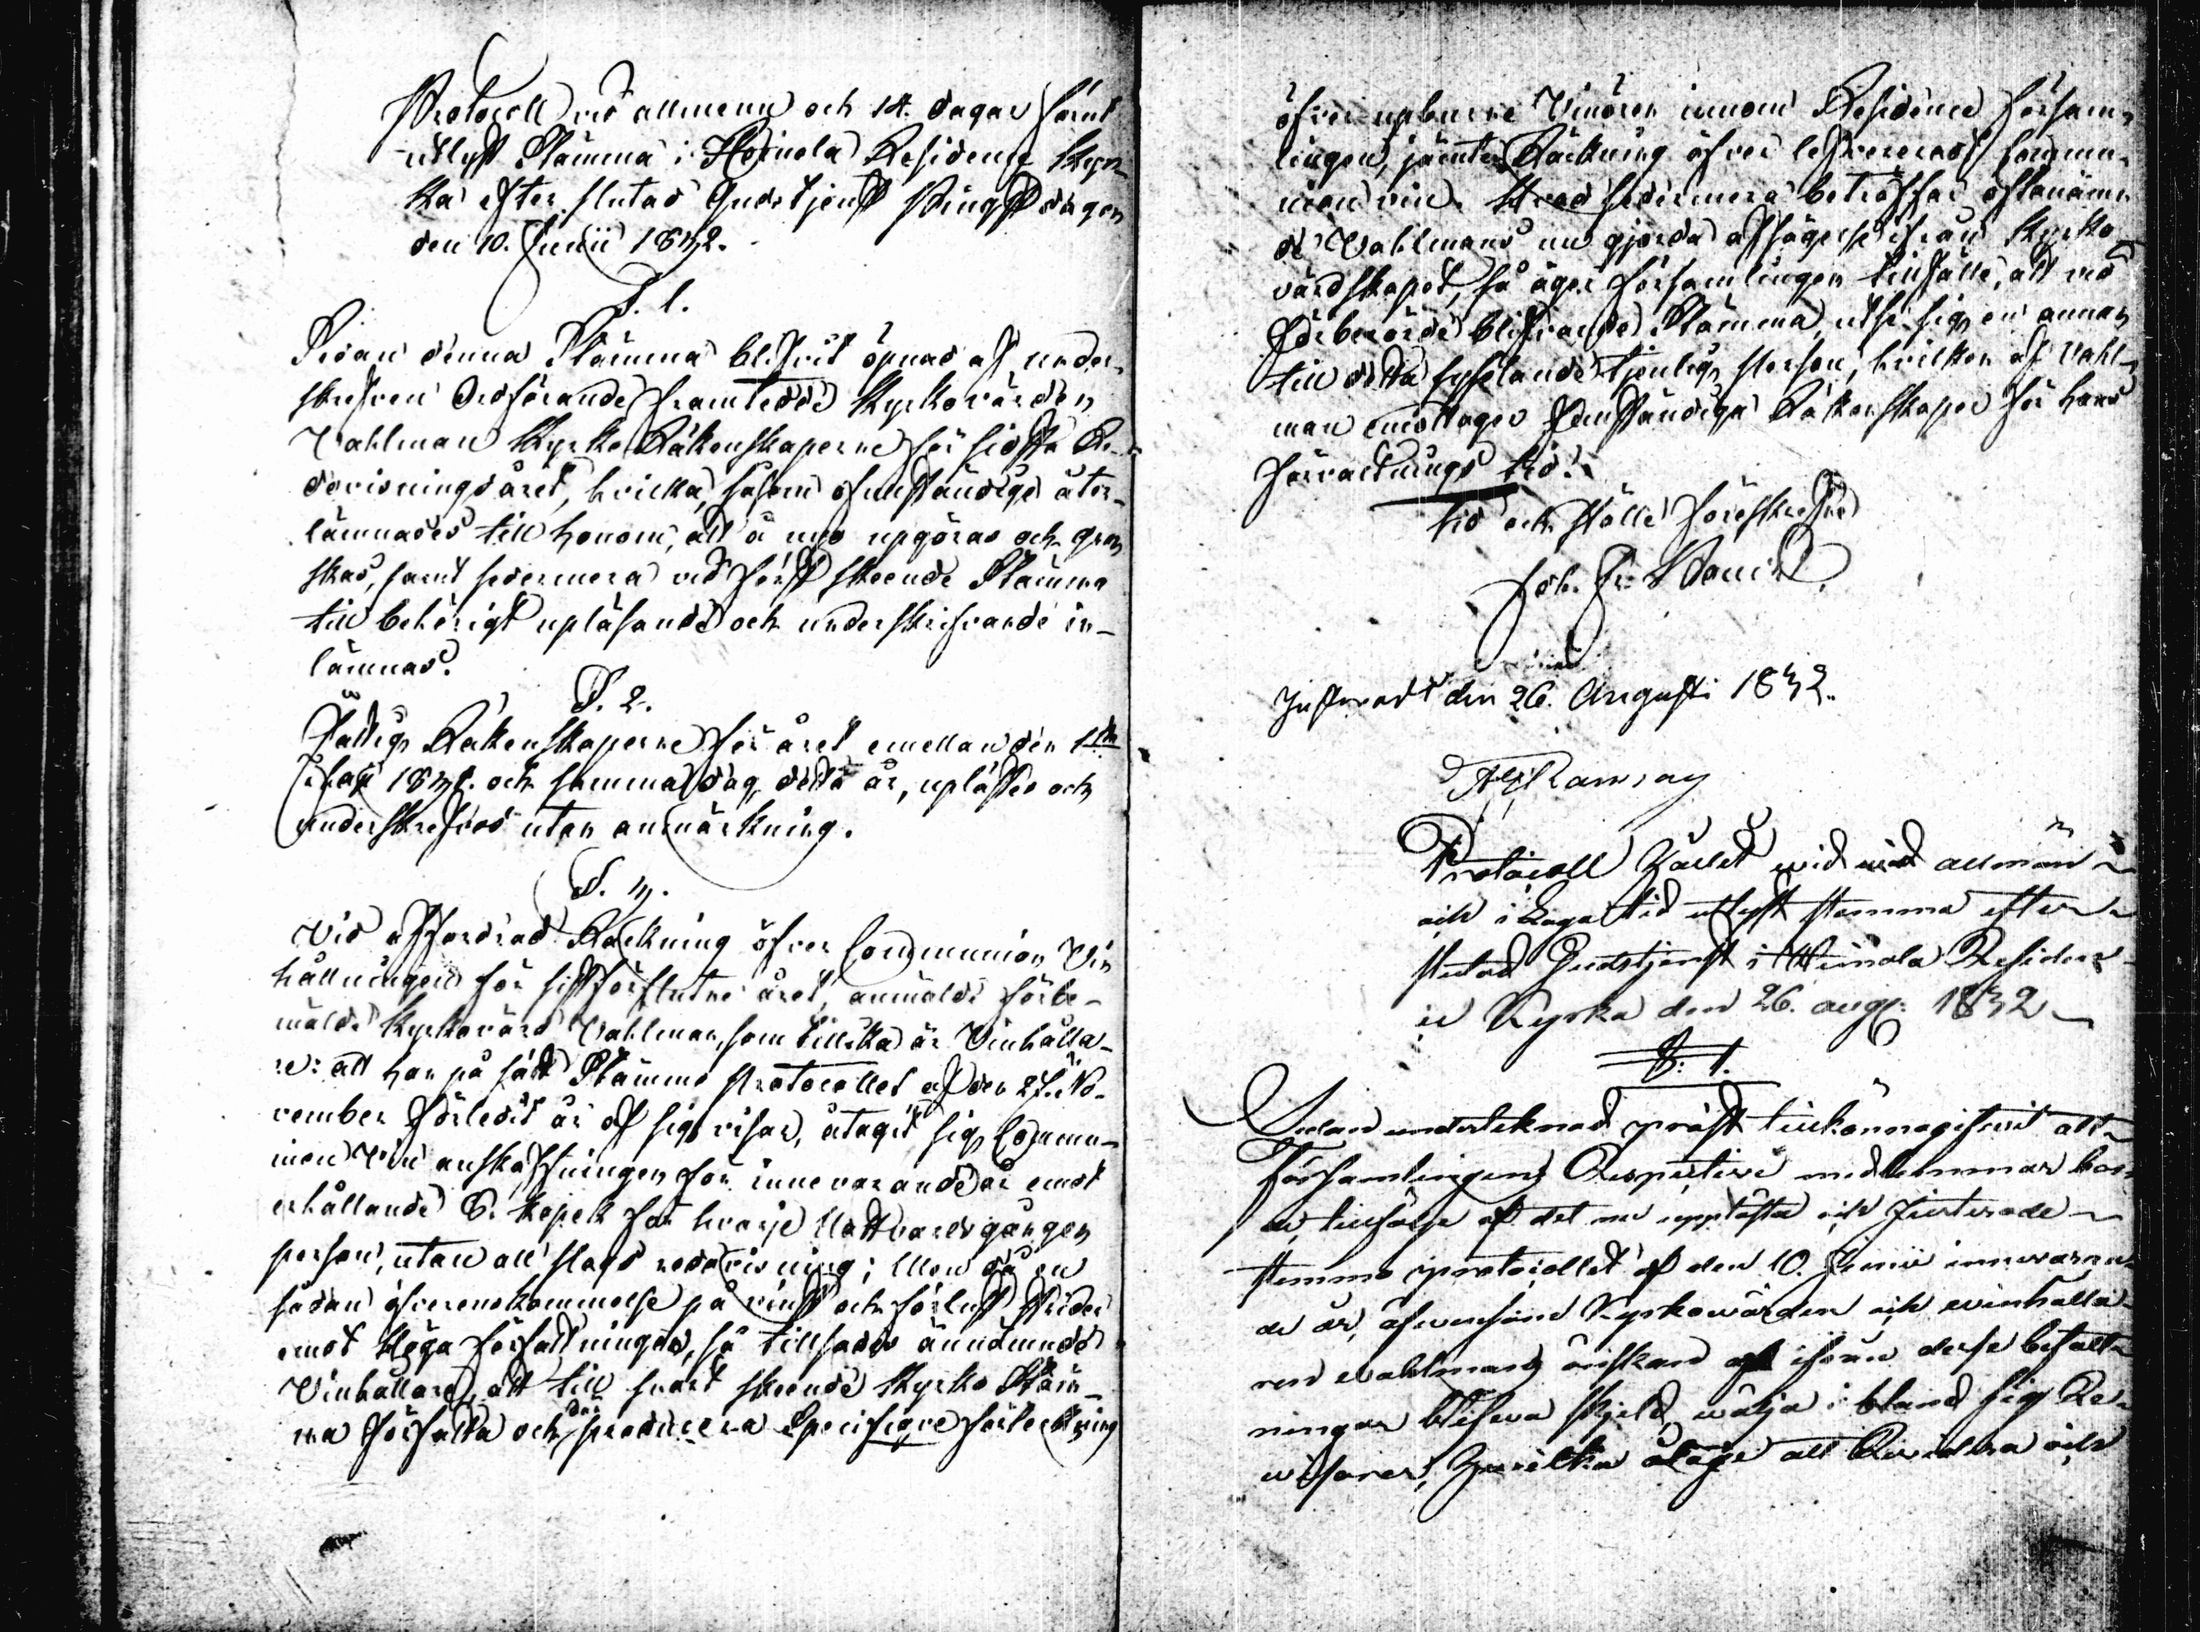 Protocoll vid allmenn och 14. dagar förut
utlyst Stämma i Heinola Residence Kyr-
ka efter slutad Gudstjenst Pingstdagen
den 10. Junii 1832.
§. 1.
Sedan denna Stämma blifvit öpnad af under-
skrefven Ordförande framtedde Kyrkovärden
Vahlman Kyrko Räkenskaperne för sidsta Re-
dovisningsåret, hvilka, såsom ofullständige åter-
lämnades till honom, att å nyo upgöras och gran-
skas, samt sedermera vid först skeende Stämma
till behörigt upläsande och underskrifvande in-
lämnas.
§. 2.
Fattigs Räkenskaperne för året emellan den 1sta
Maji 1831. och samma dag detta år, uplästes och
underskrefvos utan anmärkning.
§. 3.
Vid affordrad Räckning öfver Communion Vin
hållningen för sistförflutne året, anmälde förbe-
mälde Kyrkovärd Vahlman, som tillika är Vinhålla-
re: att han på sätt Stämmo Protocollet af den 27. No-
vember förledit år af sig visar, åtagit sig Commu-
nion Vin anskaffningen för innevarande år emot
erhållande 6. kopek för hvarje Nattvardsgången
person, utan all slags redovisning; Men då en
sådan öfverenskommelse på vinst och förlust strider
emot Höga författningar, så tillsades ännämnde
Vinhållare, att till snart skeende Kyrko Stäm-
ma författa och der producera Specifique förteckning
öfver upburne Vinören innom Residence försam-
lingen, jämte Räckning öfver lefvereradt Commu-
nion vin. Hvad sedermera beträffar oftanämn-
de Vahlmans nu gjorda afsägelse ifrån Kyrko-
värdskapet, så äger församlingen tillfälle, att vid
förberörde blifvande Stämma, utse sig en annan
till detta sysslande tjenlig Person, hvilken af Vahl-
man emottager fullständiga Räkenskaper för hans
förvaltnings tid.
tid och ställe föreskrefne
Joh. Fr:
Justeradt den 26. Augusti 1832.
Ramsay
Protocoll hållet wid allmän
och i laga tid utlyst stemma efter
slutad Gudstjenst i Heinola Residen-
ce Kyrka den 26. aug: 1832
§: 1.
Sedan underteknad präst tillkännagifwit att
Församlingens Respective medlemmar bor-
de, tillfölje af det nu upplästa och Justerade
stemmo protocollet af den 10. Junii innevaran-
de år, äfvensom Kyrkowärden och winhålla-
ren wahlmans önskan att ifrån desse befatt-
ningar blifwa skjeld, wälja i bland sig Re-
wisorer, hwilka ålåge att Revidera och